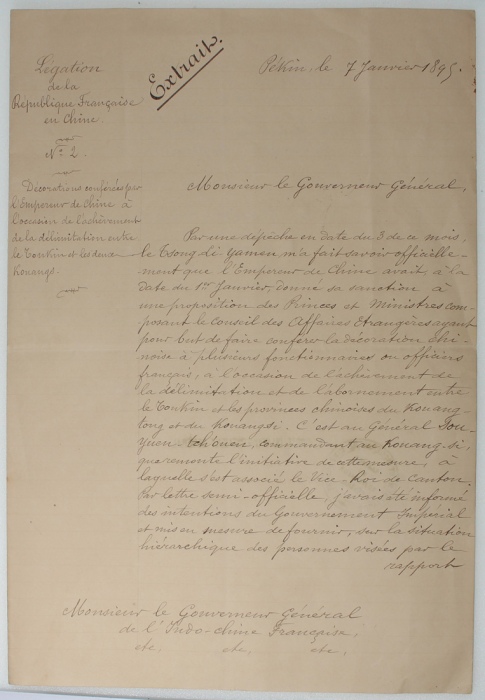 Extrait.
Légation
de la
République Française
en Chine.
Nº 2.
Décorations conférées par
l'Empereur de Chine à
l'occasion de l'achèvement
de la délimitation entre
le Tonkin et les deux
Kouangs.
Pékin, le 7 Janvier 1895.
Monsieur le Gouverneur Général,
Par une dépêche en date du 3 de ce mois,
le Tsong-li-Yamen m'a fait savoir officielle-
ment que l'Empereur de Chine avait, à la
date du 1er Janvier, donné sa sanction à
une proposition des Princes et Ministres com-
posant le Conseil des Affaires étrangères ayant
pour but de faire conférer la décoration chi-
noise à plusieurs fonctionnaires ou officiers
français, à l'occasion de l'achèvement de
la délimitation et de l'abornement entre
le Tonkin et les provinces chinoises du Kouang-
tong et du Kouangsi. C'est au Général Sou-
Yuen-Tch'ouen, commandant au Kouang-si,
que remonte l'initiative de cette mesure, à
laquelle s'est associé le Vice-Roi de Canton.
Par lettre semi-officielle, j'avais été informé
des intentions du Gouvernement Impérial
et mis en mesure de fournir, sur la situation
hiérarchique des personnes visées par le
rapport
Monsieur le Gouverneur Général
de l'Indo-chine Française,
etc, etc, etc,